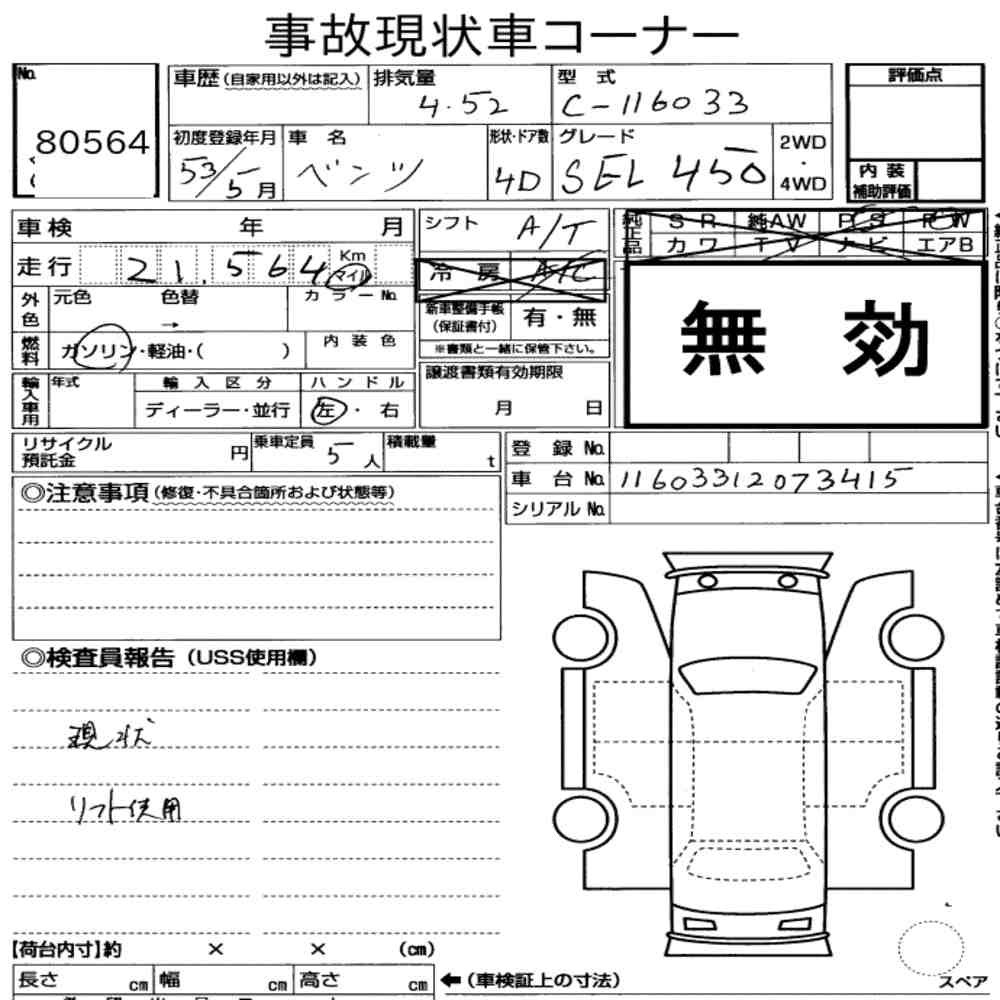 事故現状車コーナー
No. 80564
車歴(自家用以外は記入) 排気量 4.52 型式 C-116033
評価点
初度登録年月 53/5月 車名 ベンツ 形状・ドア数 4D グレード SEL 450 2WD・4WD
内装
補助評価
車検 年 月
シフト A/T
純正品 SR 純AW PS PW
カワ TV ナビ エアB
走行 21,564 Km マイル
冷房 A/C
外色 元色 色替 → カラーNo.
新車整備手帳(保証書付) 有・無
※書類と一緒に保管下さい。
無効
燃料 ガソリン・軽油・( ) 内装色
輸入車用 年式 輸入区分 ハンドル
ディーラー・並行 左・右
譲渡書類有効期限
月 日
リサイクル預託金 円 乗車定員 5人 積載量 t
登録No.
車台No. 11603312073415
シリアルNo.
◎注意事項(修復・不具合箇所および状態等)
◎検査員報告(USS使用欄)
現状
リフト使用
【荷台内寸】約 × × (cm)
長さ cm 幅 cm 高さ cm ←(車検証上の寸法)
スペア